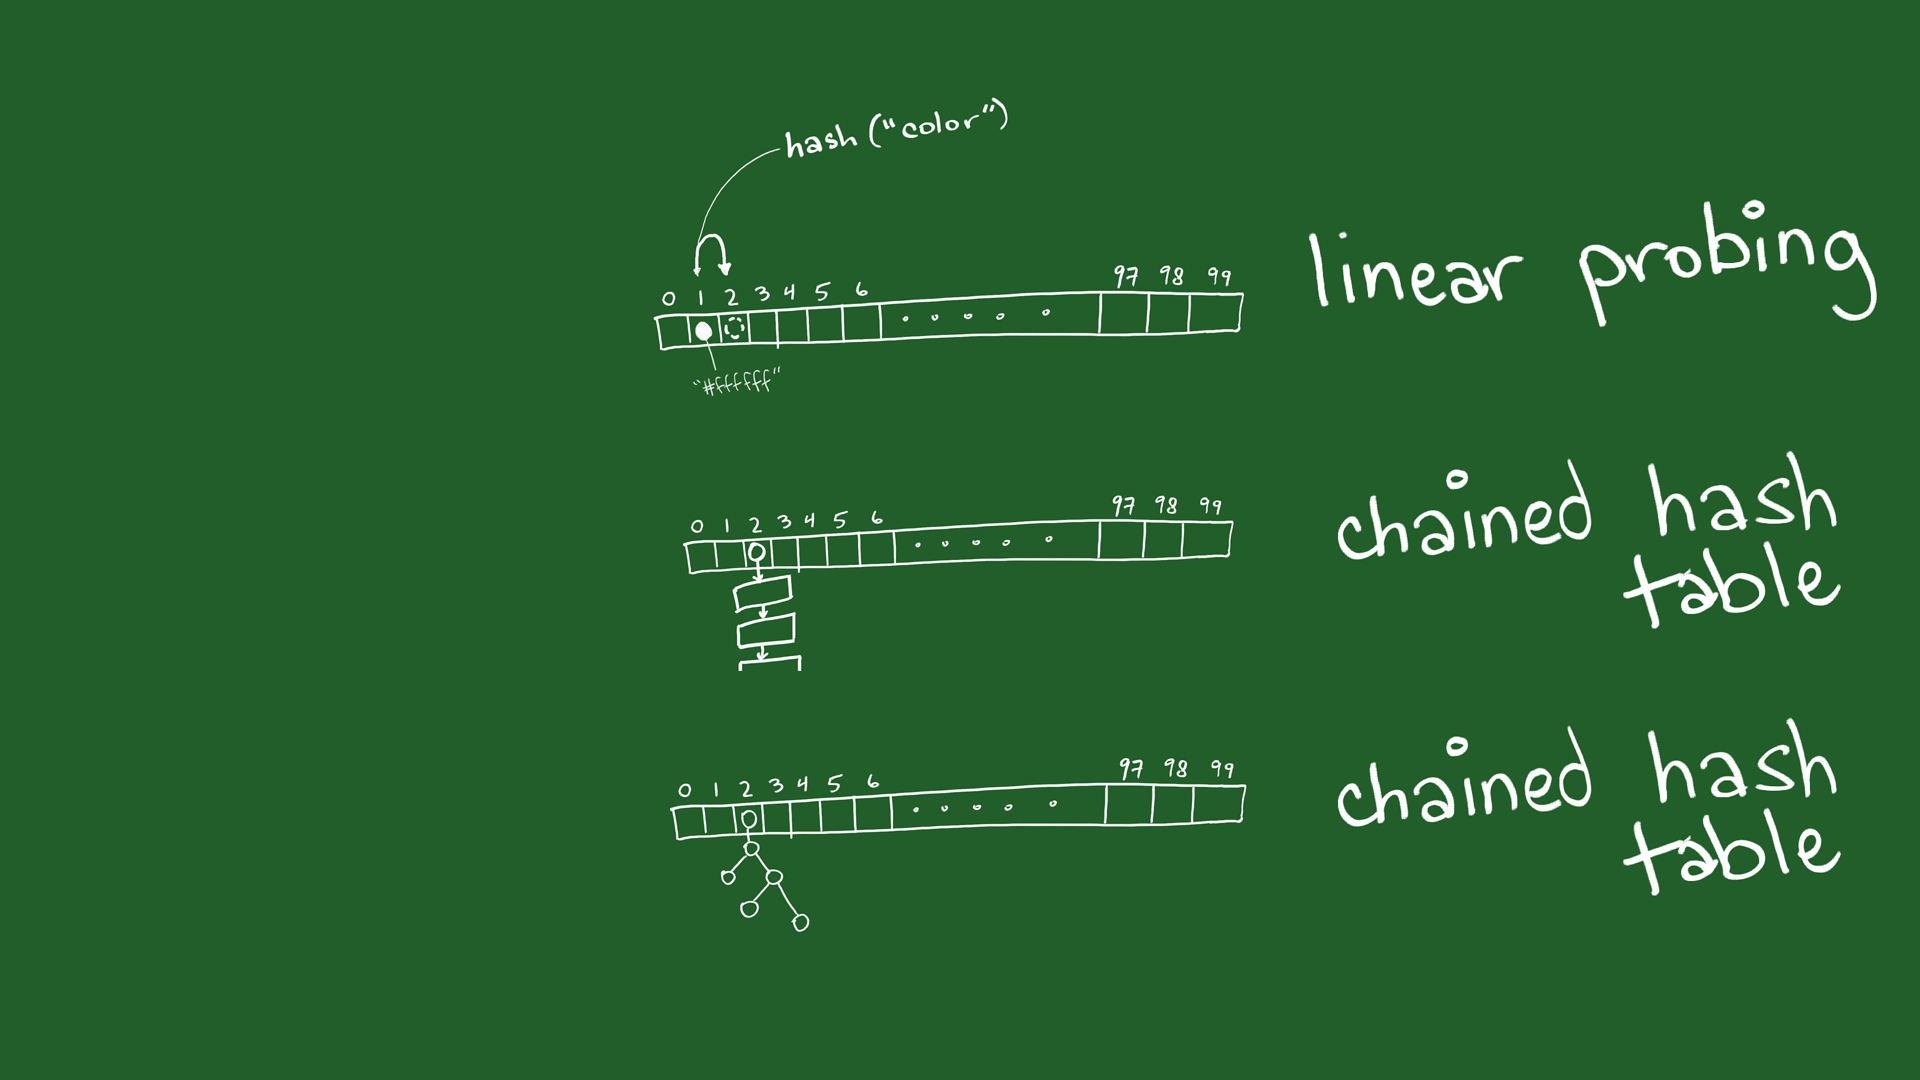 hash ("color")
0 1 2 3 4 5 6 97 98 99
"#ffffff"
linear probing
0 1 2 3 4 5 6 97 98 99
chained hash
table
0 1 2 3 4 5 6 97 98 99
chained hash
table